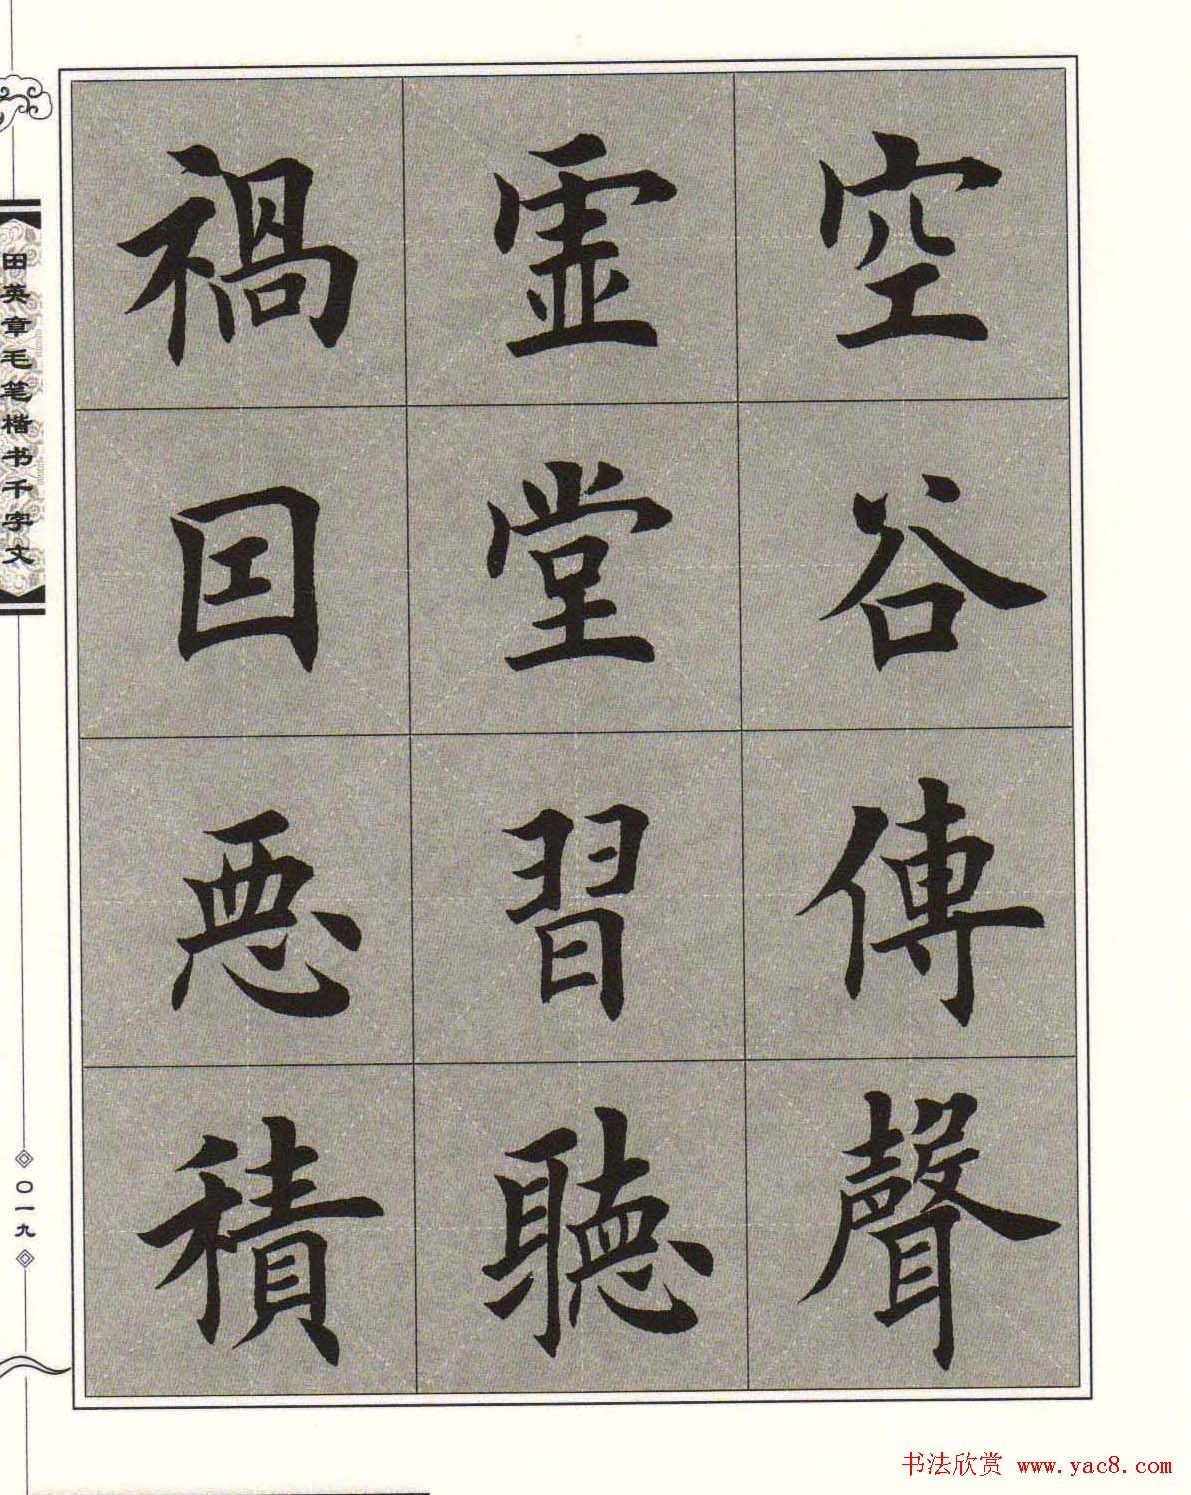 空谷傳聲
虛堂習聽
禍因惡積
田英章毛笔楷书千字文
〇一九
书法欣赏 www.yac8.com